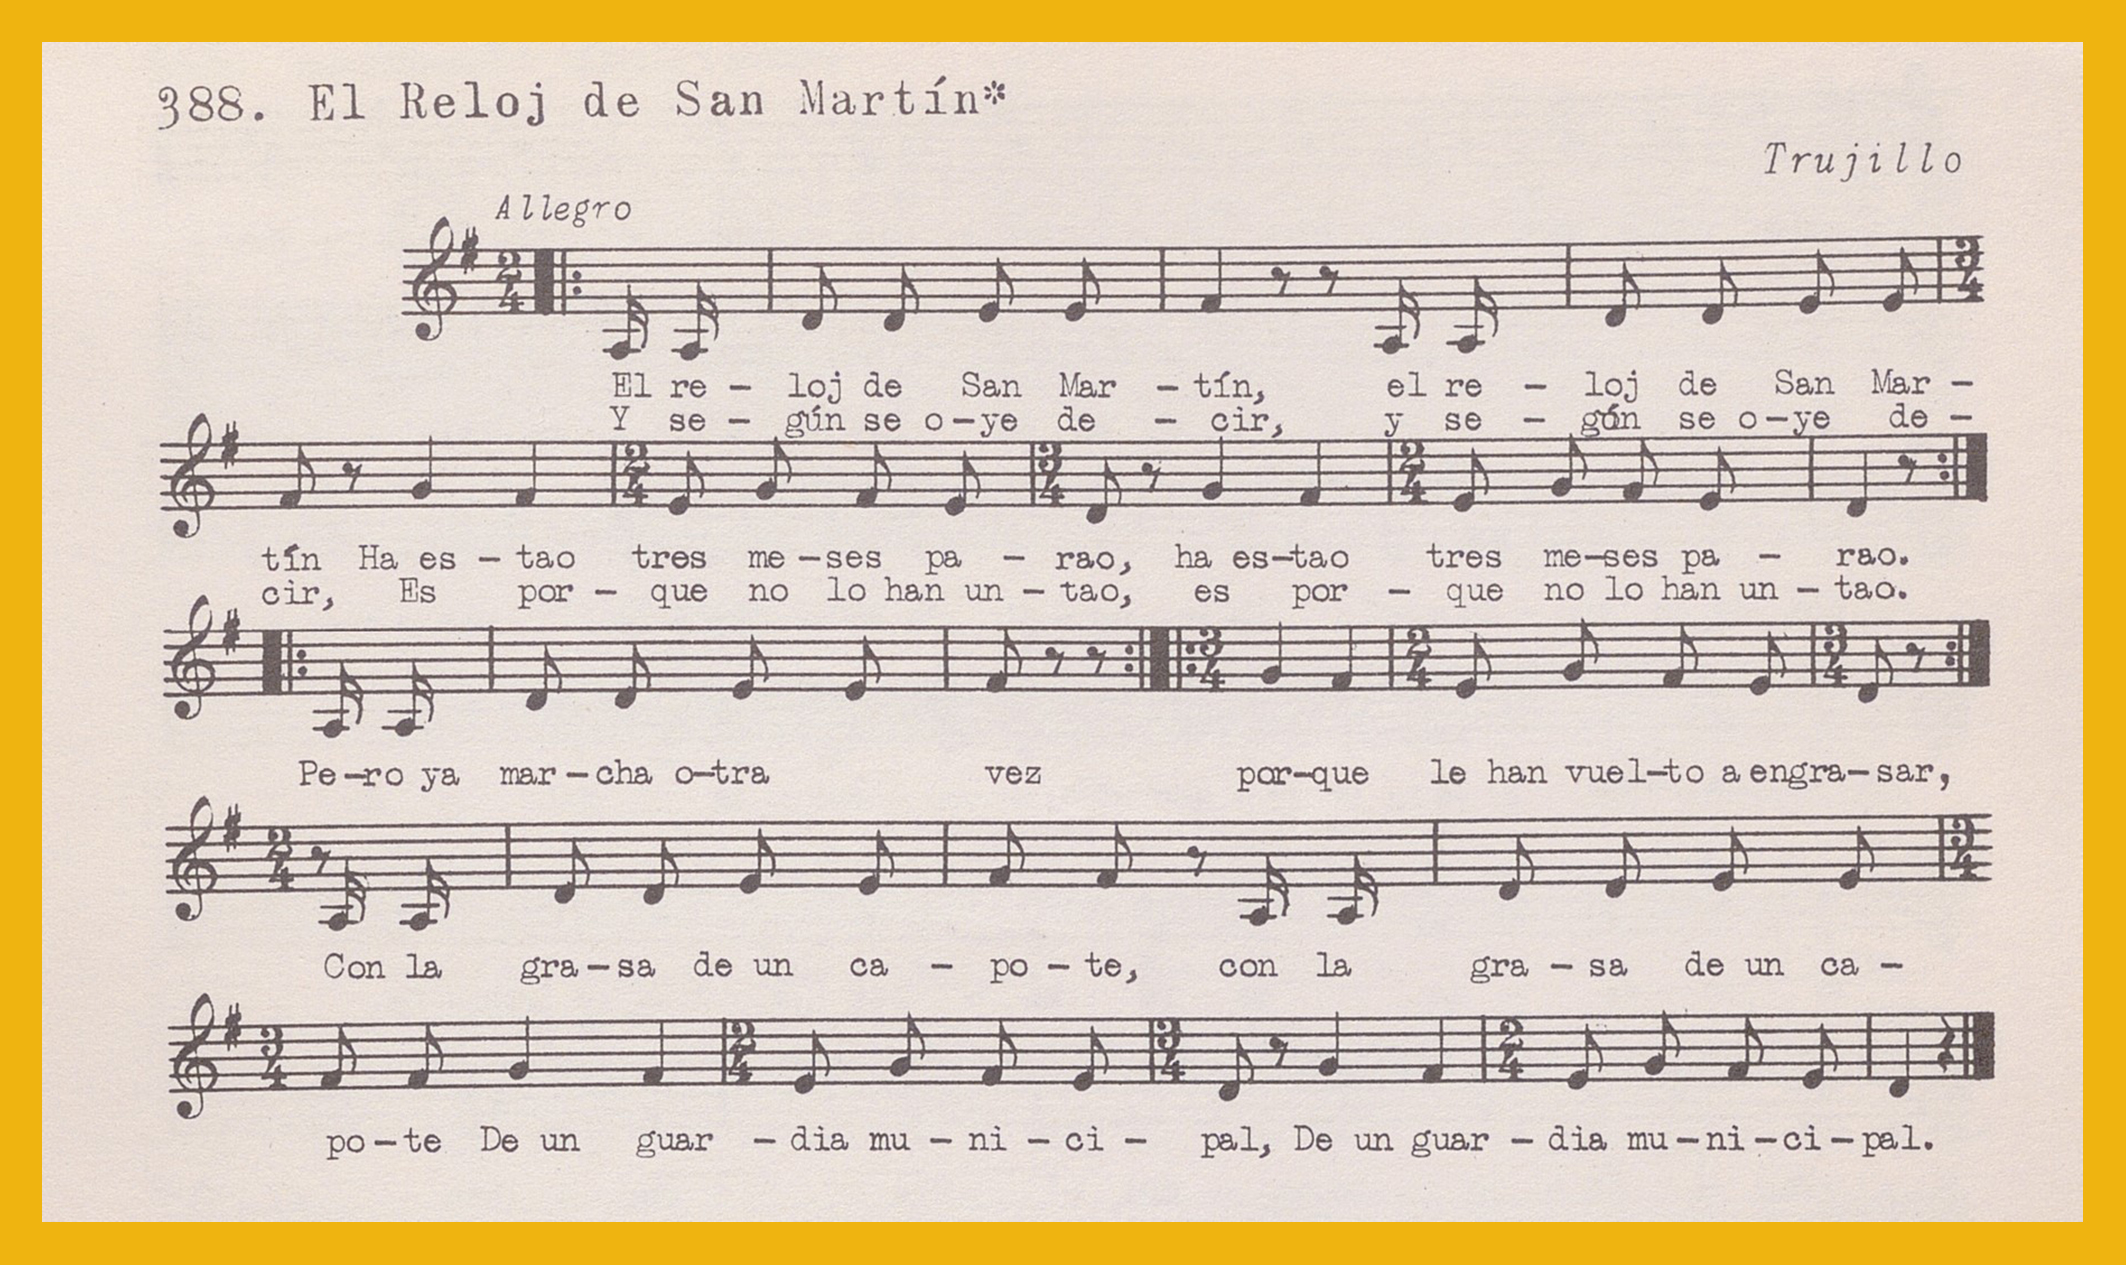 388. El Reloj de San Martín*
Trujillo
Allegro
El re - loj de San Mar - tín, el re - loj de San Mar -
Y se - gún se o-ye de - cir, y se - gún se o-ye de -
tín Ha es - tao tres me-ses pa - rao, ha es-tao tres me-ses pa - rao.
cir, Es por - que no lo han un - tao, es por - que no lo han un - tao.
Pe-ro ya mar-cha o-tra vez por-que le han vuel-to a engra-sar,
Con la gra-sa de un ca - po - te, con la gra - sa de un ca -
po-te De un guar - dia mu - ni - ci - pal, De un guar - dia mu-ni-ci-pal.